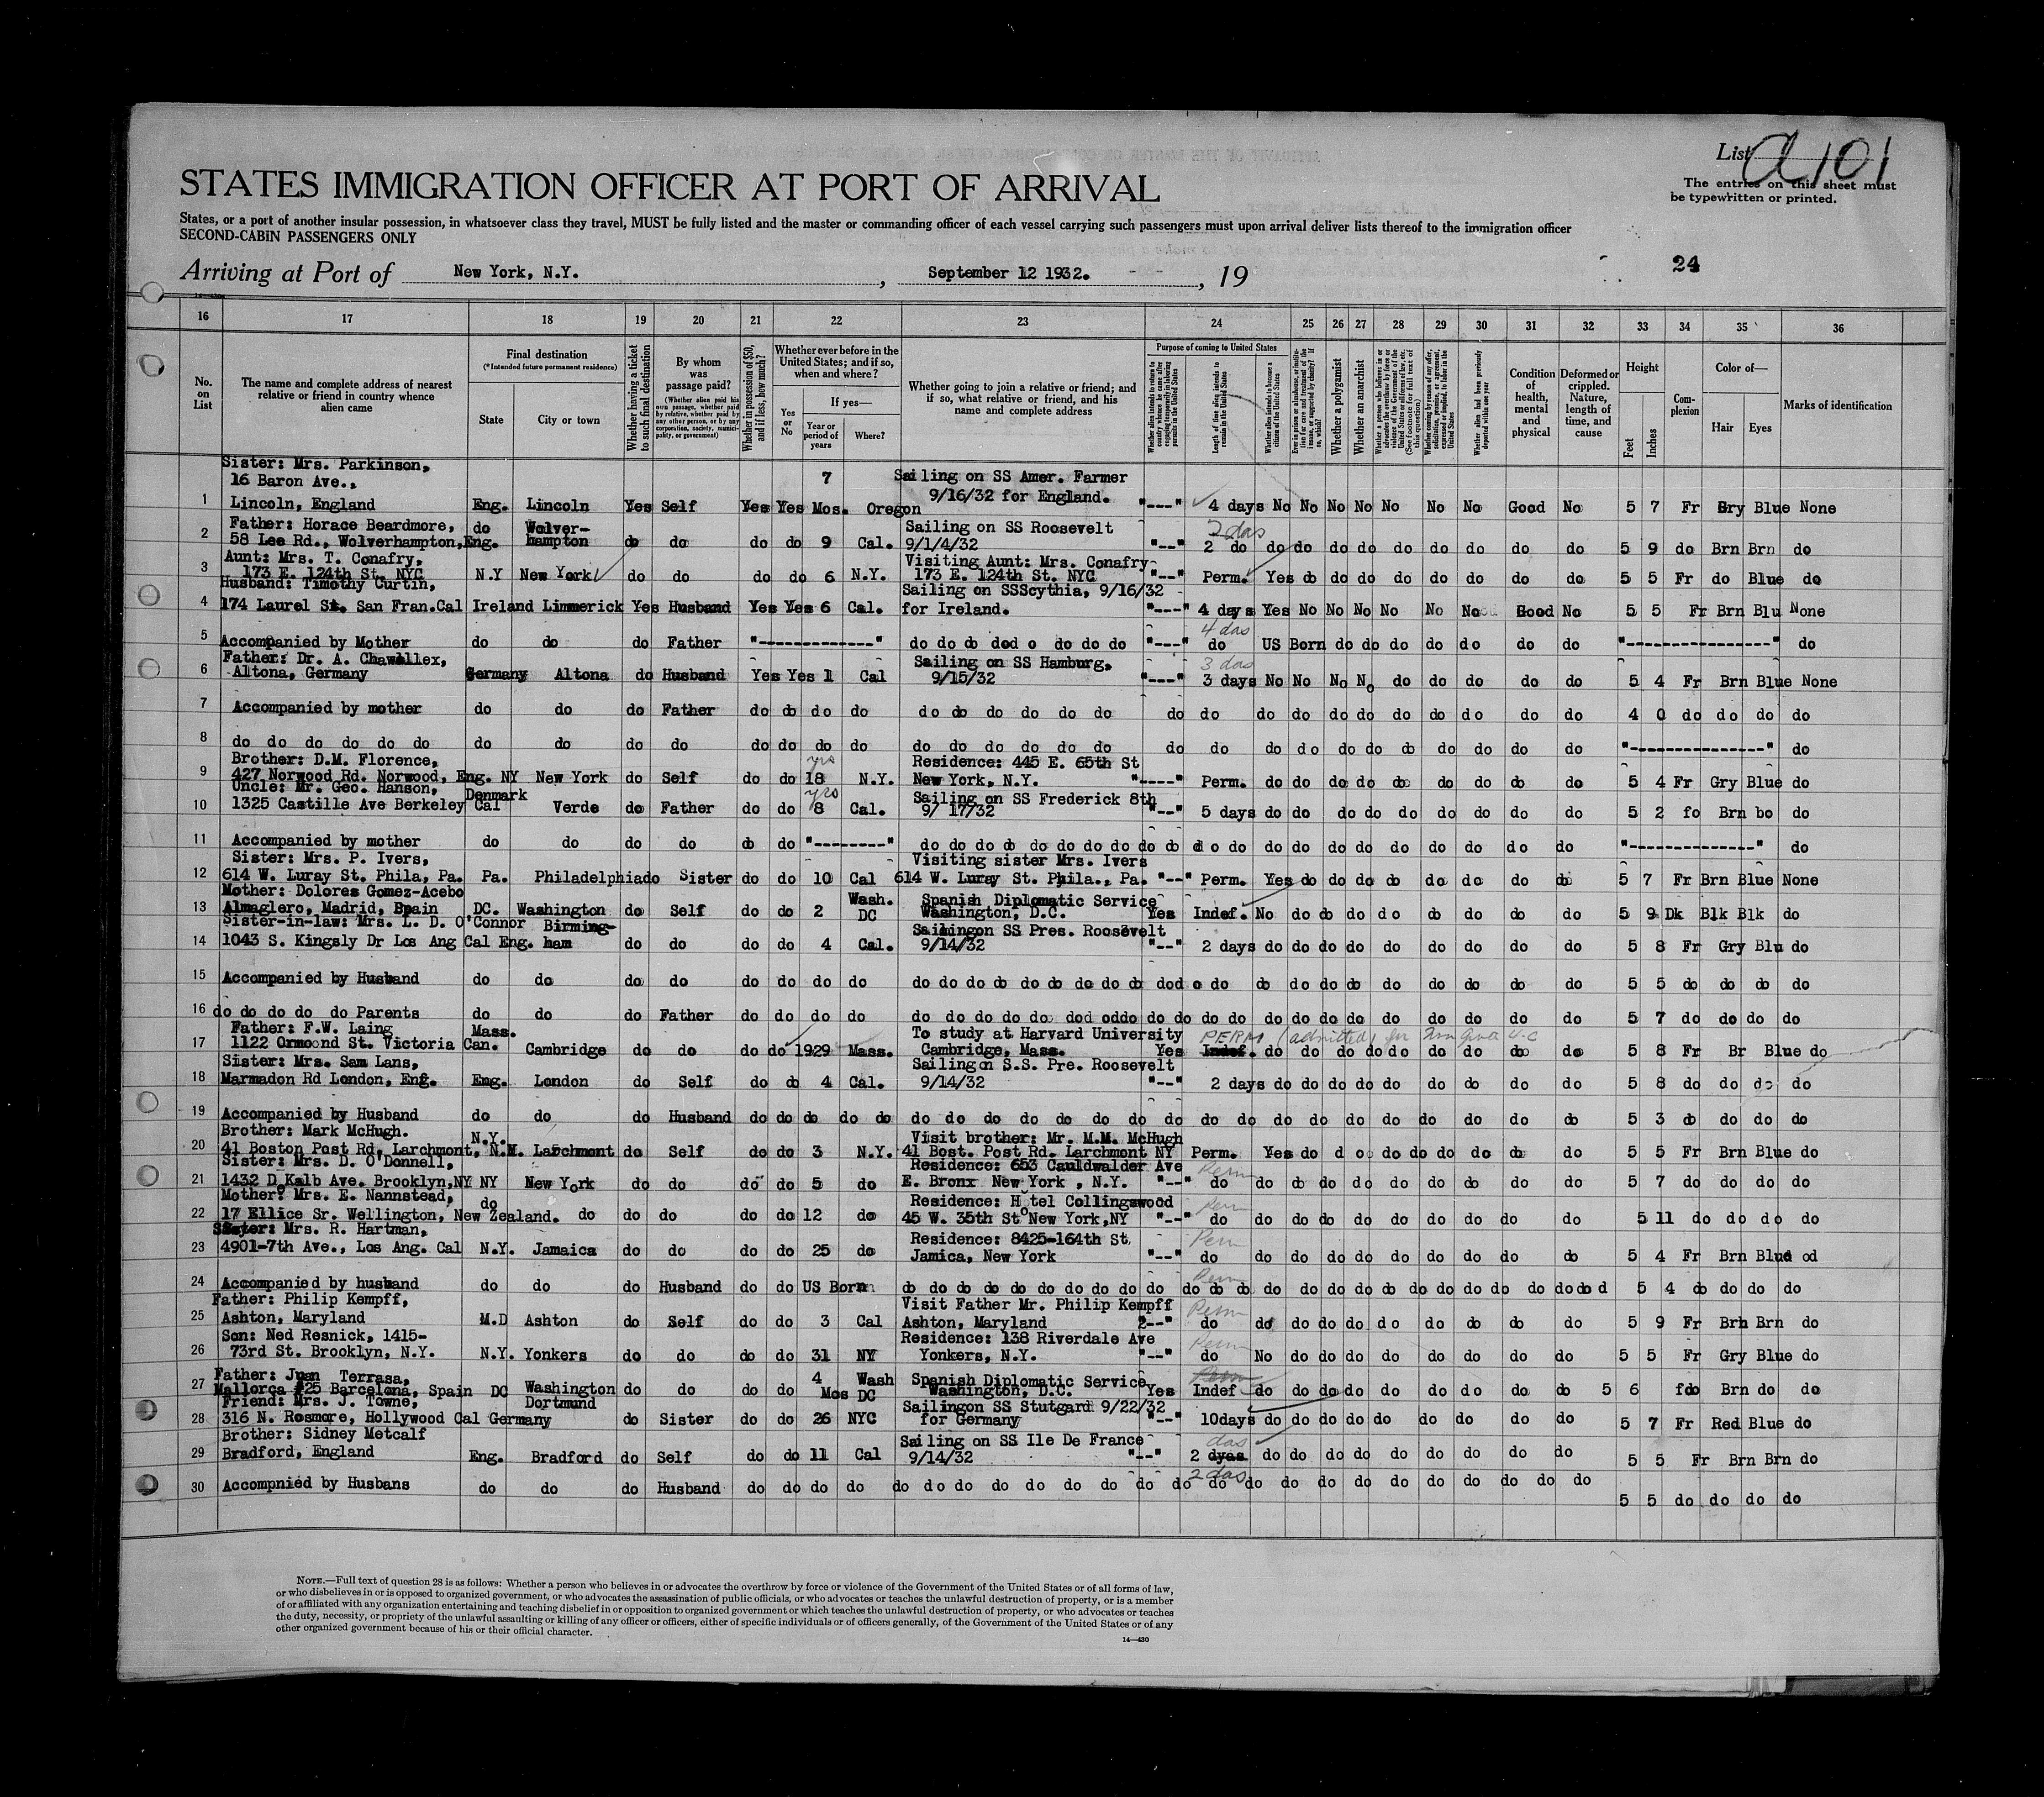 List a 101
The entries on this sheet must
be typewritten or printed.
STATES IMMIGRATION OFFICER AT PORT OF ARRIVAL
States, or a port of another insular possession, in whatsoever class they travel, MUST be fully listed and the master or commanding officer of each vessel carrying such passengers must upon arrival deliver lists thereof to the immigration officer
SECOND-CABIN PASSENGERS ONLY
24
Arriving at Port of New York, N.Y. , September 12 1932. , 19
16 17 18 19 20 21 22 23 24 25 26 27 28 29 30 31 32 33 34 35 36
No. on List
The name and complete address of nearest relative or friend in country whence alien came
Final destination
(*Intended future permanent residence)
State
City or town
Whether having a ticket to such final destination
By whom was passage paid?
(Whether alien paid his own passage, whether paid by relative, whether paid by any other person, or by any corporation, society, municipality, or government)
Whether in possession of $50, and if less, how much?
Whether ever before in the United States; and if so, when and where?
Yes or No
If yes—
Year or period of years
Where?
Whether going to join a relative or friend; and if so, what relative or friend, and his name and complete address
Purpose of coming to United States
Length of time alien intends to remain in the United States
Whether alien intends to become a citizen of the United States
Whether a polygamist
Whether an anarchist
Condition of health, mental and physical
Deformed or crippled. Nature, length of time, and cause
Height
Feet
Inches
Complexion
Color of—
Hair
Eyes
Marks of identification
Sister: Mrs. Parkinson,
16 Baron Ave., 7 Sailing on SS Amer. Farmer
9/16/32 for England.
1 Lincoln, England Eng. Lincoln Yes Self Yes Yes Mos. Oregon "---" 4 days No No No No No No No Good No 5 7 Fr Gry Blue None
Father: Horace Beardmore, do Wolver- Sailing on SS Roosevelt 2 das
2 58 Lee Rd., Wolverhampton, Eng. hampton do do do do 9 Cal. 9/1/4/32 "--" 2 do do do do do do do do do do 5 9 do Brn Brn do
Aunt: Mrs. T. Conafry, Visiting Aunt: Mrs. Conafry
3 173 E. 124th St. NYC N.Y New York do do do do 6 N.Y. 173 E. 124th St. NYC "--" Perm. Yes do do do do do do do do 5 5 Fr do Blue do
Husband: Timothy Curtin, Sailing on SSScythia, 9/16/32
4 174 Laurel St. San Fran.Cal Ireland Limmerick Yes Husband Yes Yes 6 Cal. for Ireland. "---" 4 days Yes No No No No No No Good No 5 5 Fr Brn Blu None
4 das
5 Accompanied by Mother do do do Father "-------------" do do do dod o do do do "---" do US Born do do do do do do do "-----------------" do
Father: Dr. A. Chawallex, Sailing on SS Hamburg, 3 das
6 Altona, Germany Germany Altona do Husband Yes Yes 1 Cal 9/15/32 "---" 3 days No No No No do do do do do 5 4 Fr Brn Blue None
7 Accompanied by mother do do do Father do do do do do do do do do do do do do do do do do do do do do 4 0 do do do do
8 do do do do do do do do do do do do do do do do do do do do do do do do do do do do do do do "---------------" do
Brother: D.M. Florence, yrs Residence: 445 E. 65th St
9 427 Norwood Rd. Norwood, Eng. NY New York do Self do do 18 N.Y. New York, N.Y. "----" Perm. do do do do do do do do do 5 4 Fr Gry Blue do
Uncle: Mr. Geo. Hanson, Denmark yrs Sailing on SS Frederick 8th
10 1325 Castille Ave Berkeley Cal Verde do Father do do 8 Cal. 9/ 17/32 "--" 5 days do do do do do do do do do 5 2 fo Brn bo do
11 Accompanied by mother do do do do do do "--------" do do do do do do do do do do do do do do do do do do do do "---------------" do
Sister: Mrs. P. Ivers, Visiting sister Mrs. Ivers
12 614 W. Luray St. Phila, Pa. Pa. Philadelphiado Sister do do 10 Cal 614 W. Luray St. Phila., Pa. "--" Perm. Yes do do do do do do do do 5 7 Fr Brn Blue None
Mother: Dolores Gomez-Acebo Wash. Spanish Diplomatic Service
13 Almaglero, Madrid, Bpain DC. Washington do Self do do 2 DC Washington, D.C. Yes Indef. No do do do do do do do do 5 9 Dk Blk Blk do
Sister-in-law: Mrs. L. D. O'Connor Birming- Sailingon SS Pres. Roosevelt
14 1043 S. Kingsly Dr Los Ang Cal Eng. ham do do do do 4 Cal. 9/14/32 "--" 2 days do do do do do do do do do 5 8 Fr Gry Blu do
15 Accompanied by Husband do do do do do do do do do do do do do do do do do dod o do do do do do do do do do do 5 5 do do do do
16 do do do do do Parents do do do Father do do do do do do do do do dod oddo do do do do do do do do do do do do do 5 7 do do do do
Father: F.W. Laing Mass. To study at Harvard University PERM (admitted)
17 1122 Ormoond St. Victoria Can. Cambridge do do do do 1929 Mass. Cambridge, Mass. Yes Indef. do do do do do do do do do 5 8 Fr Br Blue do
Sister: Mrs. Sam Lans, Sailingon S.S. Pre. Roosevelt
18 Marmadon Rd London, Eng. Eng. London do Self do do 4 Cal. 9/14/32 "--" 2 days do do do do do do do do do 5 8 do do do do
19 Accompanied by Husband do do do Husband do do do do do do do do do do do do do do do do do do do do do do do do do 5 3 do do do do
Brother: Mark McHugh. N.Y. Visit brother: Mr. M.M. McHugh
20 41 Boston Post Rd, Larchmont, N.M. Larchmont do Self do do 3 N.Y. 41 Bost. Post Rd. Larchmont NY Perm. Yes do do do do do do do do 5 5 Fr Brn Blue do
Sister: Mrs. D. O'Donnell, Residence: 653 Cauldwalder Ave Perm
21 1432 D Kalb Ave. Brooklyn,NY NY New York do do do do 5 do E. Bronx New York , N.Y. "--" do do do do do do do do do do 5 7 do do do do
Mother: Mrs. E. Nannstead, do Residence: Hotel Collingswood Perm
22 17 Ellice Sr. Wellington, New Zealand. do do do do do 12 do 45 W. 35th St New York,NY "--" do do do do do do do do do do 5 11 do do do do
Mrs. R. Hartman, Residence: 8425-164th St. Perm
23 4901-7th Ave., Los Ang. Cal N.Y. Jamaica do do do do 25 do Jamica, New York "--" do do do do do do do do do do 5 4 Fr Brn Blue od
Perm
24 Accompanied by husband do do do Husband do do US Born do do do do do do do do do do do do do do do do do do do do do do do do do 5 4 do do do do
Father: Philip Kempff, Visit Father Mr. Philip Kempff Perm
25 Ashton, Maryland M.D Ashton do Self do do 3 Cal Ashton, Maryland 2--" do do do do do do do do do do 5 9 Fr Brn Brn do
Son: Ned Resnick, 1415- Residence: 138 Riverdale Ave Perm
26 73rd St. Brooklyn, N.Y. N.Y. Yonkers do do do do 31 NY Yonkers, N.Y. "--" do No do do do do do do do do 5 5 Fr Gry Blue do
Father: Juan Terrasa, 4 Wash Spanish Diplomatic Service Perm
27 Mallorca #25 Barcelona, Spain DC Washington do do do do Mos DC Washington, D.C. Yes Indef do do do do do do do do do 5 6 fdo Brn do do
Friend: Mrs. J. Towne, Dortmund Sailingon SS Stutgard 9/22/32
28 316 N. Rosmore, Hollywood Cal Germany do Sister do do 26 NYC for Germany "--" 10days do do do do do do do do do 5 7 Fr Red Blue do
Brother: Sidney Metcalf Sailing on SS Ile De France das
29 Bradford, England Eng. Bradford do Self do do 11 Cal 9/14/32 "--" 2 dyas do do do do do do do do do 5 5 Fr Brn Brn do
2 das
30 Accompnied by Husbans do do do Husband do do do do do do do do do do do do do do do do do do do do do do do do do 5 5 do do do do
NOTE.—Full text of question 28 is as follows: Whether a person who believes in or advocates the overthrow by force or violence of the Government of the United States or of all forms of law,
or who disbelieves in or is opposed to organized government, or who advocates the assassination of public officials, or who advocates or teaches the unlawful destruction of property, or is a member
of or affiliated with any organization entertaining and teaching disbelief in or opposition to organized government or which teaches the unlawful destruction of property, or who advocates or teaches
the duty, necessity, or propriety of the unlawful assaulting or killing of any officer or officers, either of specific individuals or of officers generally, of the Government of the United States or of any
other organized government because of his or their official character.
14—430